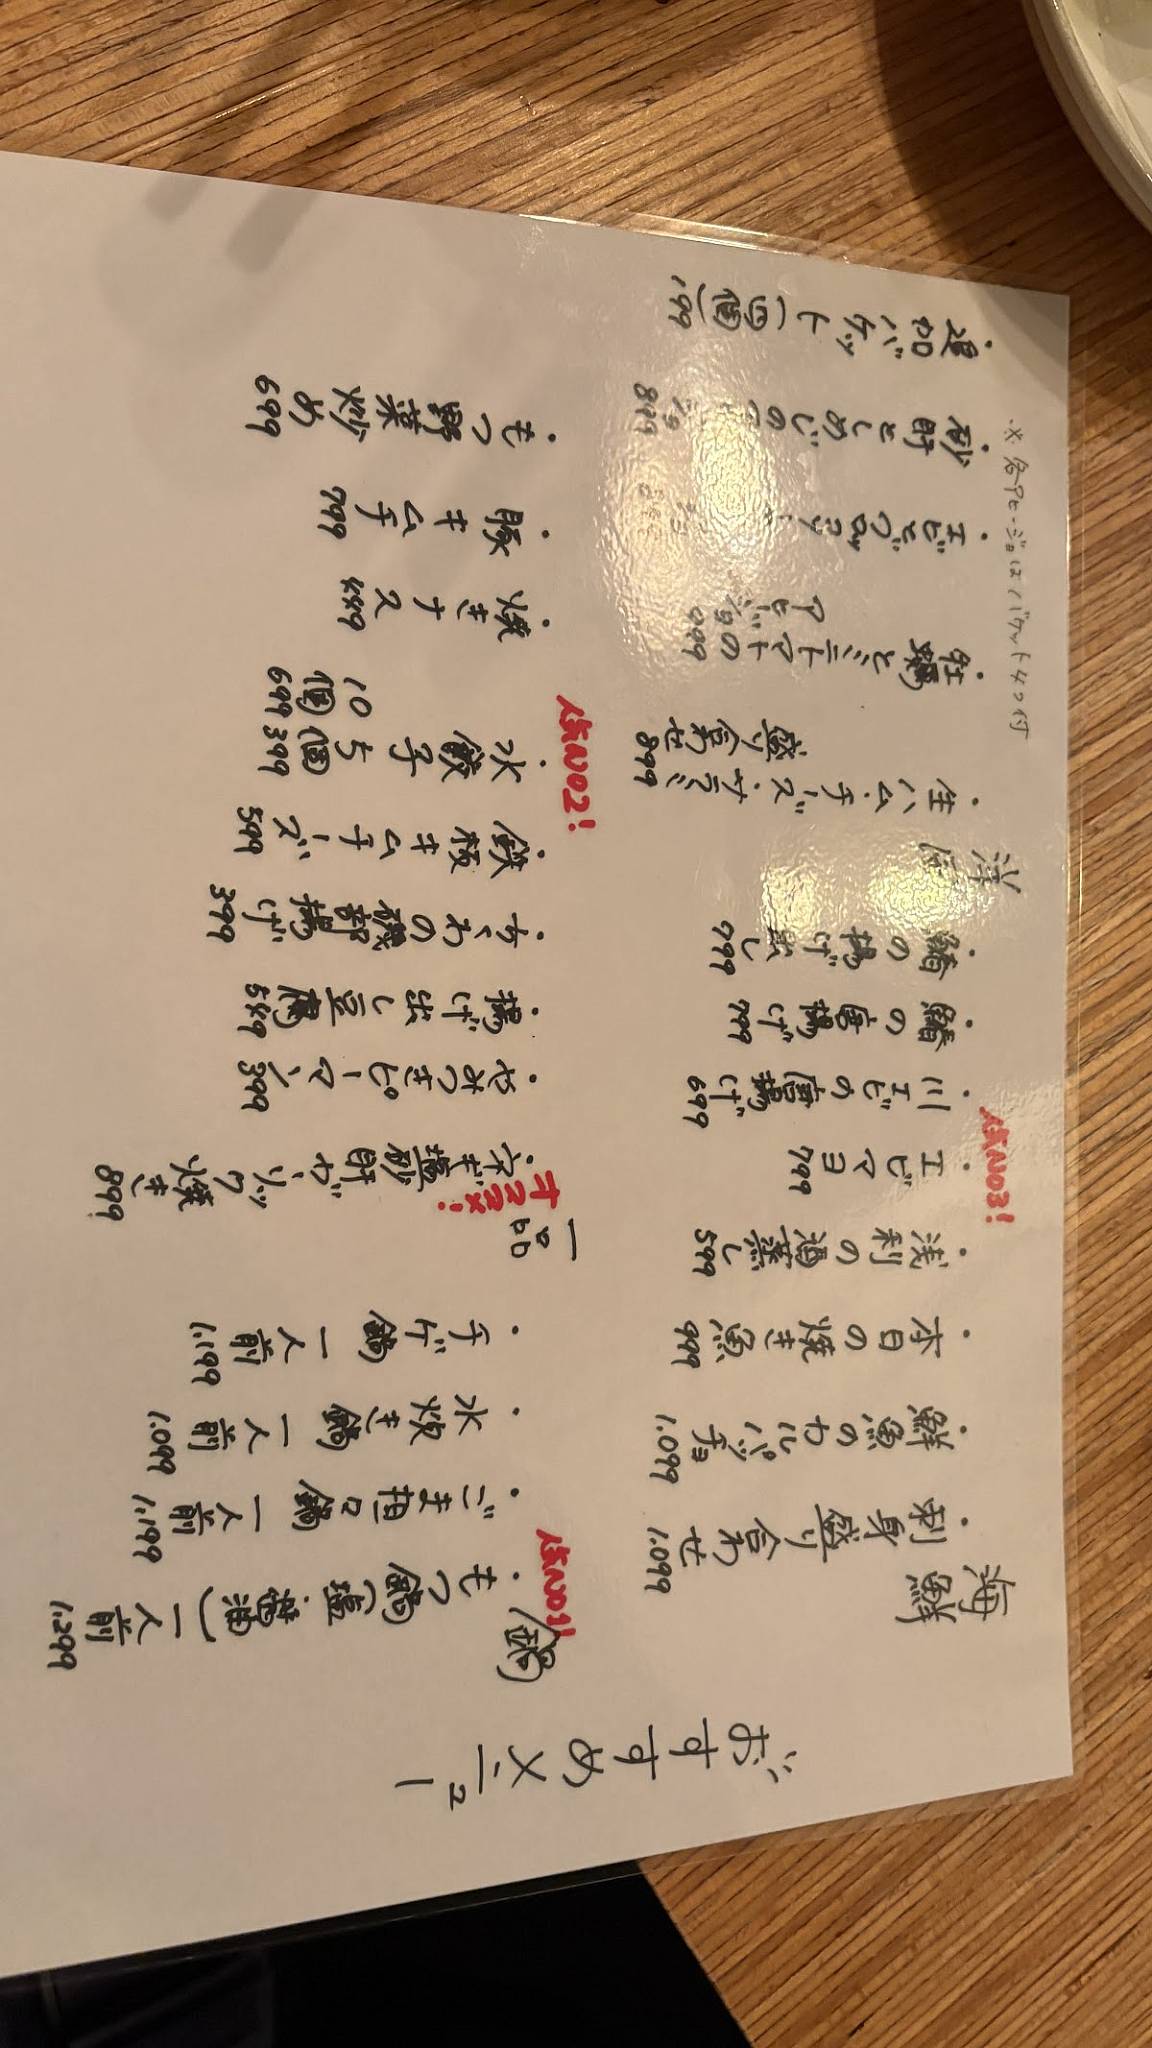 おすすめメニュー
海鮮
・刺身盛り合わせ 1.099
・鮮魚のカルパッチョ 1.099
・本日の焼き魚 999
・浅利の酒蒸し 599
人気NO3!
・エビマヨ 799
・川エビの唐揚げ 699
・鱈の唐揚げ 799
・鱈の揚げ出し 799
洋風
・生ハム・チーズ・サラミ
盛り合わせ 899
・牡蠣とミニトマトの
アヒージョ 999
・エビとブロッコリー
・砂肝としめじの
899
・追加バゲット(四個) 199
※各アヒージョはバゲット4つ付
鍋
人気NO1!
・もつ鍋(塩・醤油)一人前 1.299
・ごま担々鍋 一人前 1.199
・水炊き鍋 一人前 1.099
・チゲ鍋 一人前 1.199
一品
オススメ!
・ネギ塩砂肝ガーリック焼き 899
・やみつきピーマン 399
・揚げ出し豆腐 549
・ちくわの磯部揚げ 399
・鉄板キムチーズ 599
人気NO2!
・水餃子 5個 399
10個 699
・焼きナス 449
・豚キムチ 799
・もつ野菜炒め 699